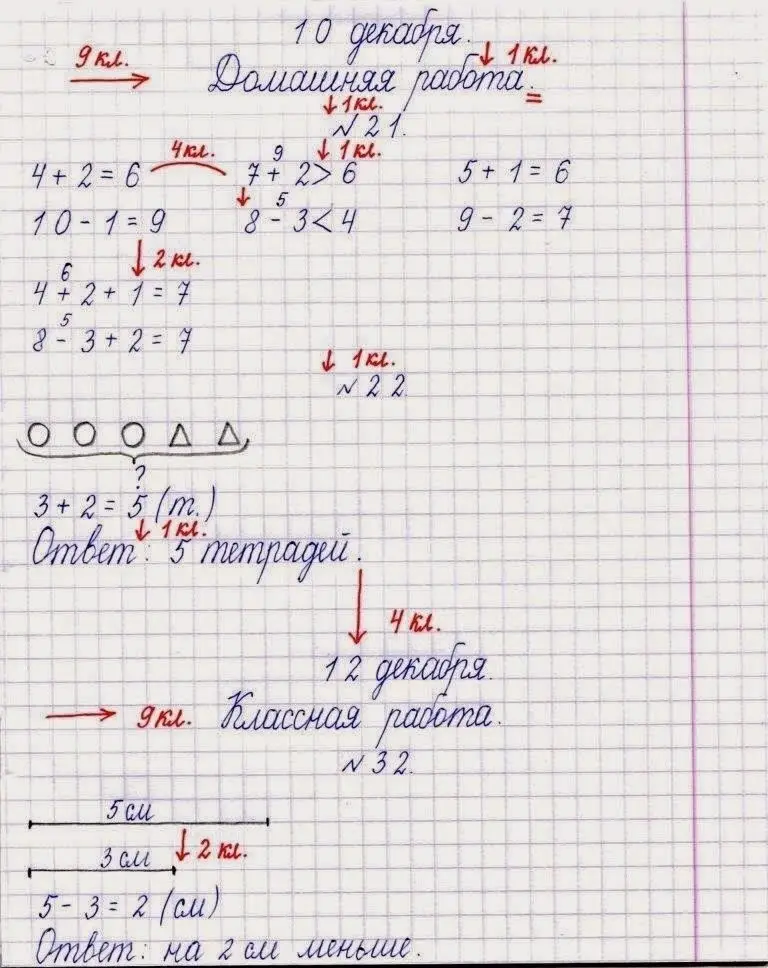 10 декабря.
9 кл. Домашняя работа. 1 кл.
1 кл.
№ 21.
4 кл. 9 1 кл.
4 + 2 = 6 7 + 2 > 6 5 + 1 = 6
5
10 - 1 = 9 8 - 3 < 4 9 - 2 = 7
2 кл.
6
4 + 2 + 1 = 7
5
8 - 3 + 2 = 7
1 кл.
№ 22.
?
3 + 2 = 5 (т.)
1 кл.
Ответ: 5 тетрадей.
4 кл.
12 декабря.
9 кл. Классная работа.
№ 32.
5 см
3 см 2 кл.
5 - 3 = 2 (см)
Ответ: на 2 см меньше.